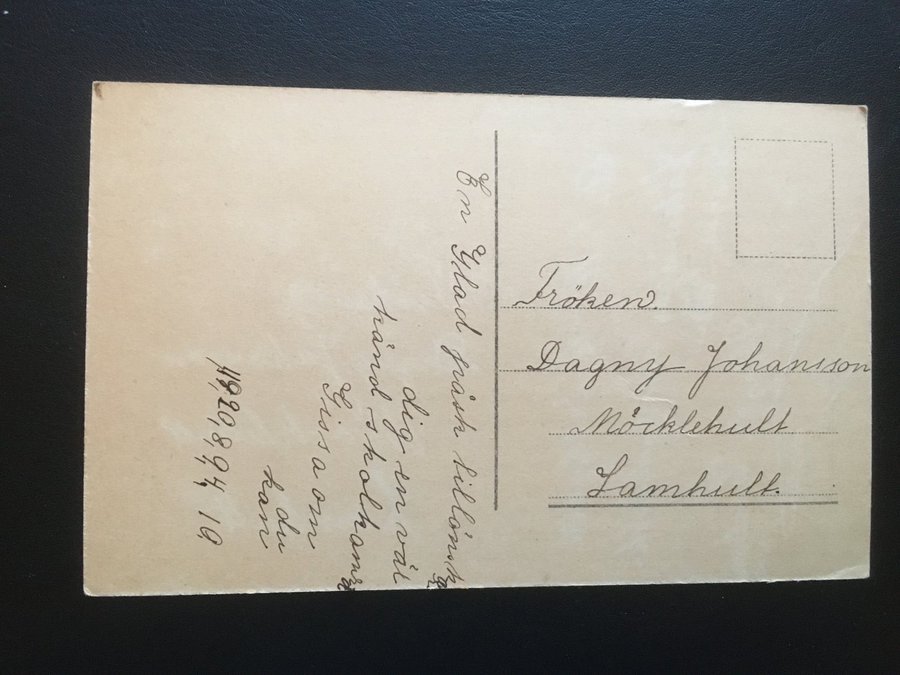 En Glad påsk tillönsk
dig en väl
känd skolkamr
Gissa om
du
kan
Fröken.
Dagny Johansson
Möcklehult
Lamhult.